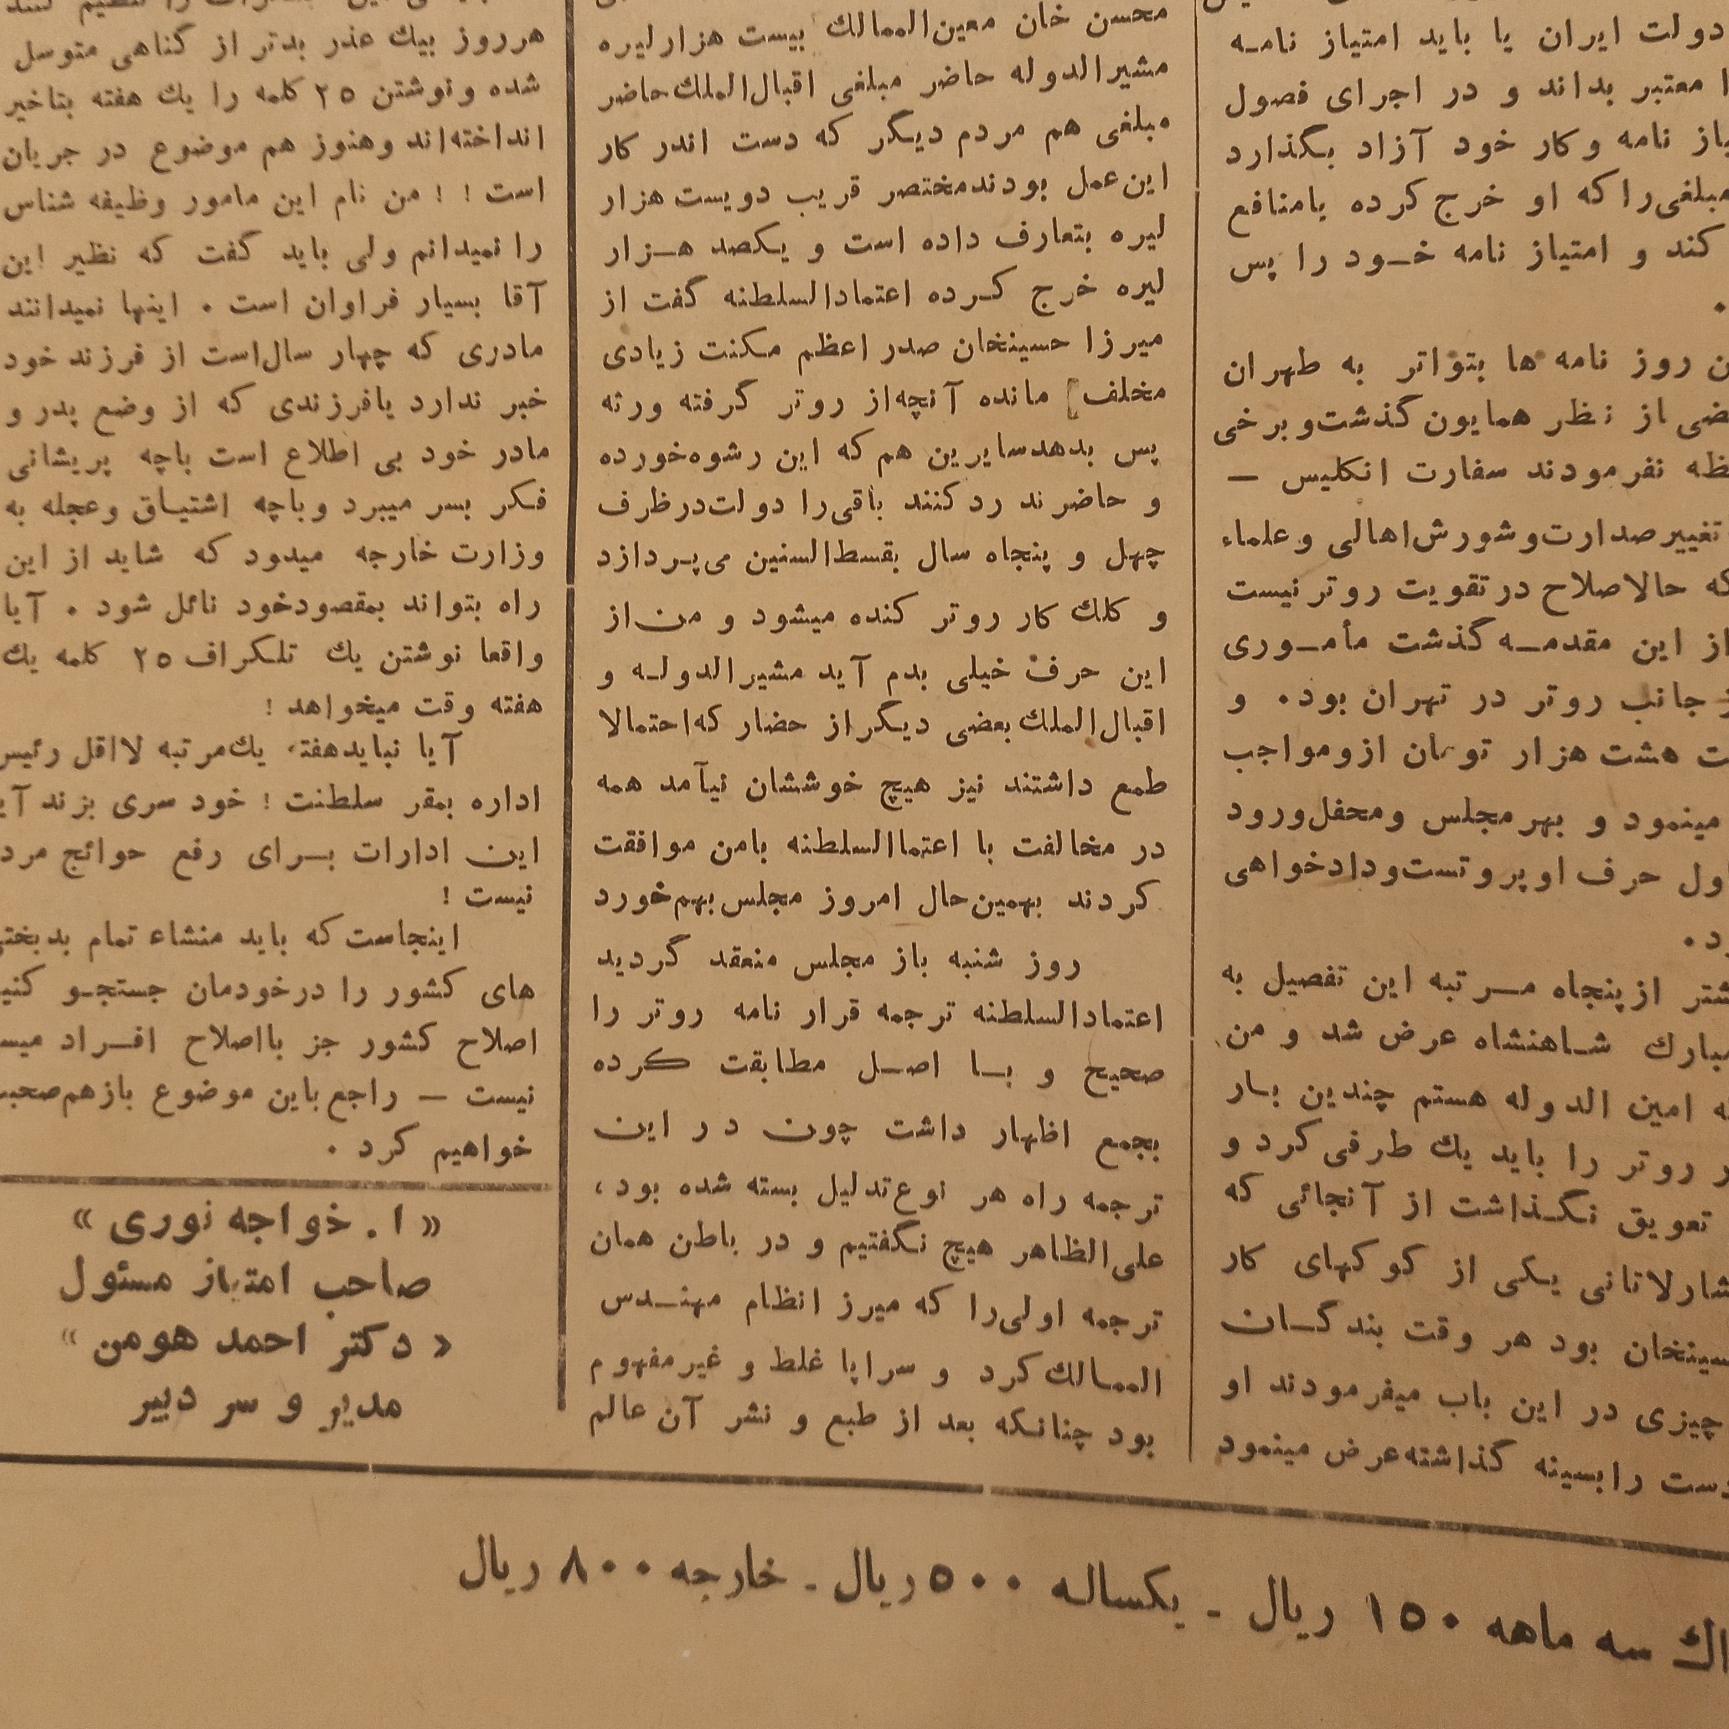 دولت ایران یا باید امتیاز نامـه
معتبر بداند و در اجرای فصول
نامه وکار خود آزاد بگذارد
مبلغی‌را که او خرج کرده یامنافع
کند و امتیاز نامه خـود را پس
روز نامه ها بتواتر به طهران
از نظر همایون گذشت‌و برخی
نفرمودند سفارت انکلیس —
تغییرصدارت‌وشورش‌اهالی وعلماء
که حالاصلاح درتقویت روتر نیست
از این مقدمــه گذشت مأمـوری
جانب روتر در تهران بود. و
هشت هزار تومان ازومواجب
مینمود و بهرمجلس ومحفل‌ورود
اول حرف اوپروتست‌ودادخواهی
ازپنجاه مـرتبه این تفصیل به
شـاهنشاه عرض شد و من
امین الدوله هستم چندین بـار
روتر را باید یك طرفی کرد و
تعویق نگـذاشت از آنجائی که
یـکی از کوکهای کار
بود هر وقت بندگـان
چیزی در این باب میفرمودند او
رابسینه گذاشته‌عرض مینمود
محسن خان معین‌الممالك بیست هزارلیره
مشیرالدوله حاضر مبلغی اقبال‌الملك‌حاضر
مبلغی هم مردم دیـگر که دست اندر کار
این‌عمل بودندمختصر قریب دویست هزار
لیره بتعارف داده است و یـکصد هـزار
لیره خرج کـرده اعتمادالسلطنه گفت از
میرزا حسینخان صدر اعظم مکنت زیادی
مخلف مانده آنچه‌از روتر گرفته ورثه
پس بدهدسایرین هم‌که این رشوه‌خورده
و حاضرند رد کنند باقی‌را دولت‌درظرف
چهل و پنجاه سال بقسط‌السنین می‌پـردازد
و کلك کار روتر کنده میشود و من‌از
این حرف خیلی بدم آید مشیرالدولـه و
اقبال‌الملك‌بعضی دیگراز حضار که‌احتمالا
طمع داشتند نیز هیچ خوششان نیآمد همه
در مخالفت با اعتماالسلطنه بامن موافقت
کردند بهمین‌حال امروز مجلس‌بهم‌خورد
روز شنبه باز مجلس منعقد گردید
اعتمادالسلطنه ترجمه قرار نامه روتر را
صحیح و بـا اصـل مطابقت کرده
بجمع اظهار داشت چون در این
ترجمه راه هر نوع‌تدلیل بسته شده بود،
علی‌الظاهر هیچ نگفتیم و در باطن همان
ترجمه اولی‌را که میرز انظام مهنـدس
الممـالك‌کرد و سراپا غلط و غیرمفهوم
بود چنانکه بعد از طبع و نشر آن عالم
هرروز بیك عذر بدتر از گناهی متوسل
شده ونوشتن ۲۵ کلمه را یك هفته بتاخیر
انداخته‌اند وهنوز هم موضوع در جریان
است ! ! من نام این مامور وظیفه شناس
را نمیدانم ولی باید گفت که نظیر این
آقا بسیار فراوان است . اینها نمیدانند
مادری که چهار سال‌است از فرزند خود
خبر ندارد یافرزندی که از وضع پدر و
مادر خود بی اطلاع است باچه پریشانی
فکر بسر میبرد وباچه اشتیـاق وعجله به
وزارت خارجه میدود که شاید از این
راه بتواند بمقصودخود نائل شود . آیا
واقعا نوشتن یك تلـکراف ۲۵ کلمه یك
هفته وقت میخواهد !
آیا نبایدهفته یك‌مرتبه لااقل رئیس
اداره بمقر سلطنت ! خود سری بزند
این ادارات بـرای رفع حوائج
نیست !
اینجاست‌که باید منشاء تمام
های کشور را درخودمان جستجـو
اصلاح کشور جز بااصلاح افـراد
نیست — راجع‌باین موضوع بازهم‌
خواهیم کرد .
« ا . خواجه نوری »
صاحب امتیاز مسئول
« دکتر احمد هومن »
مدیر و سر دبیر
سه ماهه ۱۵۰ ریال ـ یکساله ۵۰۰ ریال ـ خارجه ۸۰۰ ریال